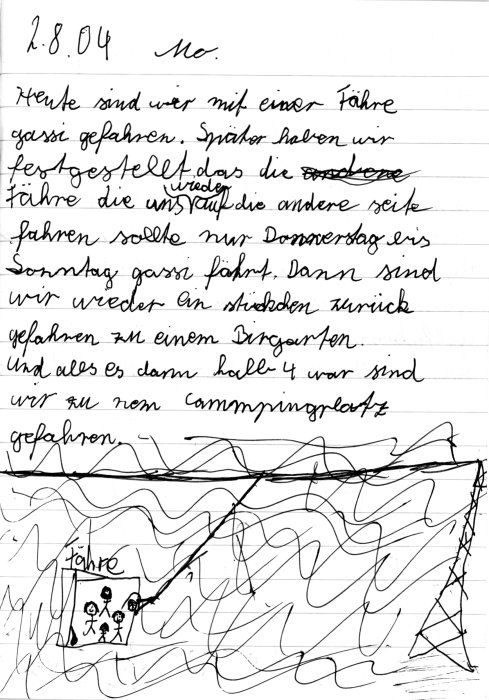 2.8.04 Mo.
Heute sind wir mit einer Fähre
gassi gefahren. Später haben wir
festgestellt das die andrene
Fähre die uns wieder auf die andere seite
fahren sollte nur Donnerstag bis
Sonntag gassi fährt. Dann sind
wir wieder ein stückchen zurück
gefahren zu einem Birgarten.
Und alles es dann halb 4 war sind
wir zu nem Cammpingplatz
gefahren.
Fähre